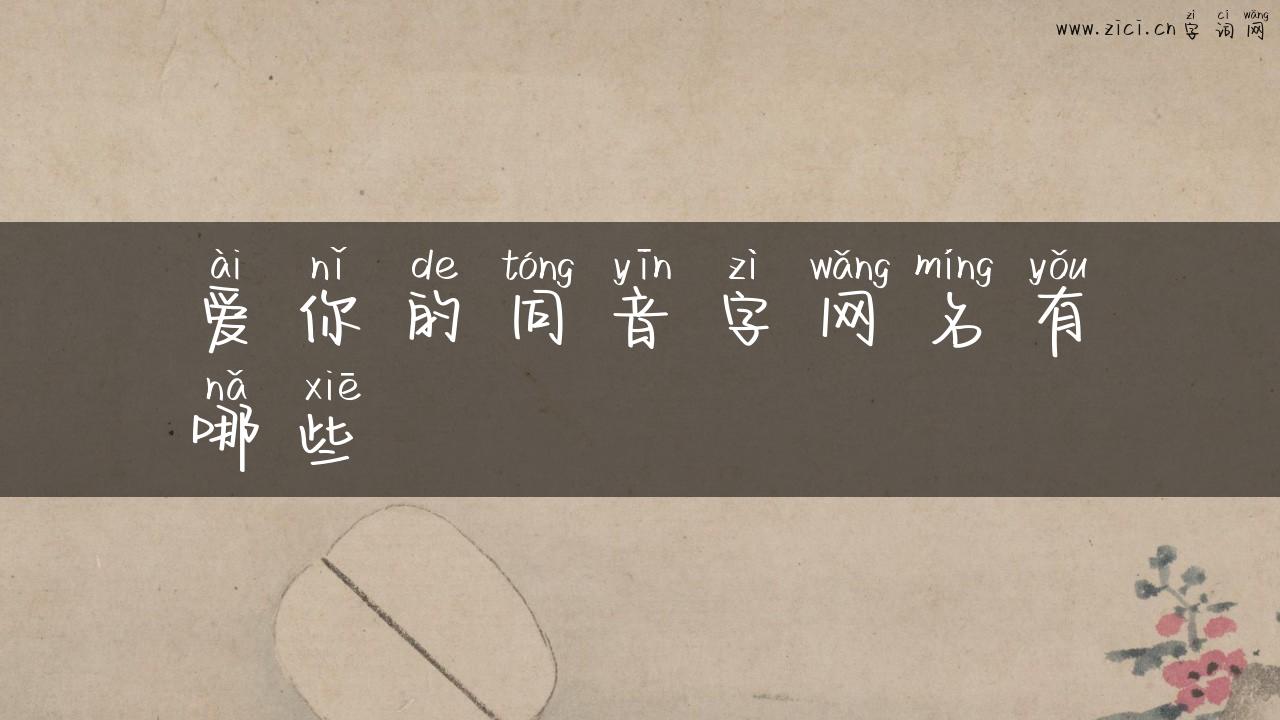 zì cí wǎng
www.zici.cn 字词网
ài nǐ de tóng yīn zì wǎng míng yǒu
爱你的同音字网名有
nǎ xiē
哪些